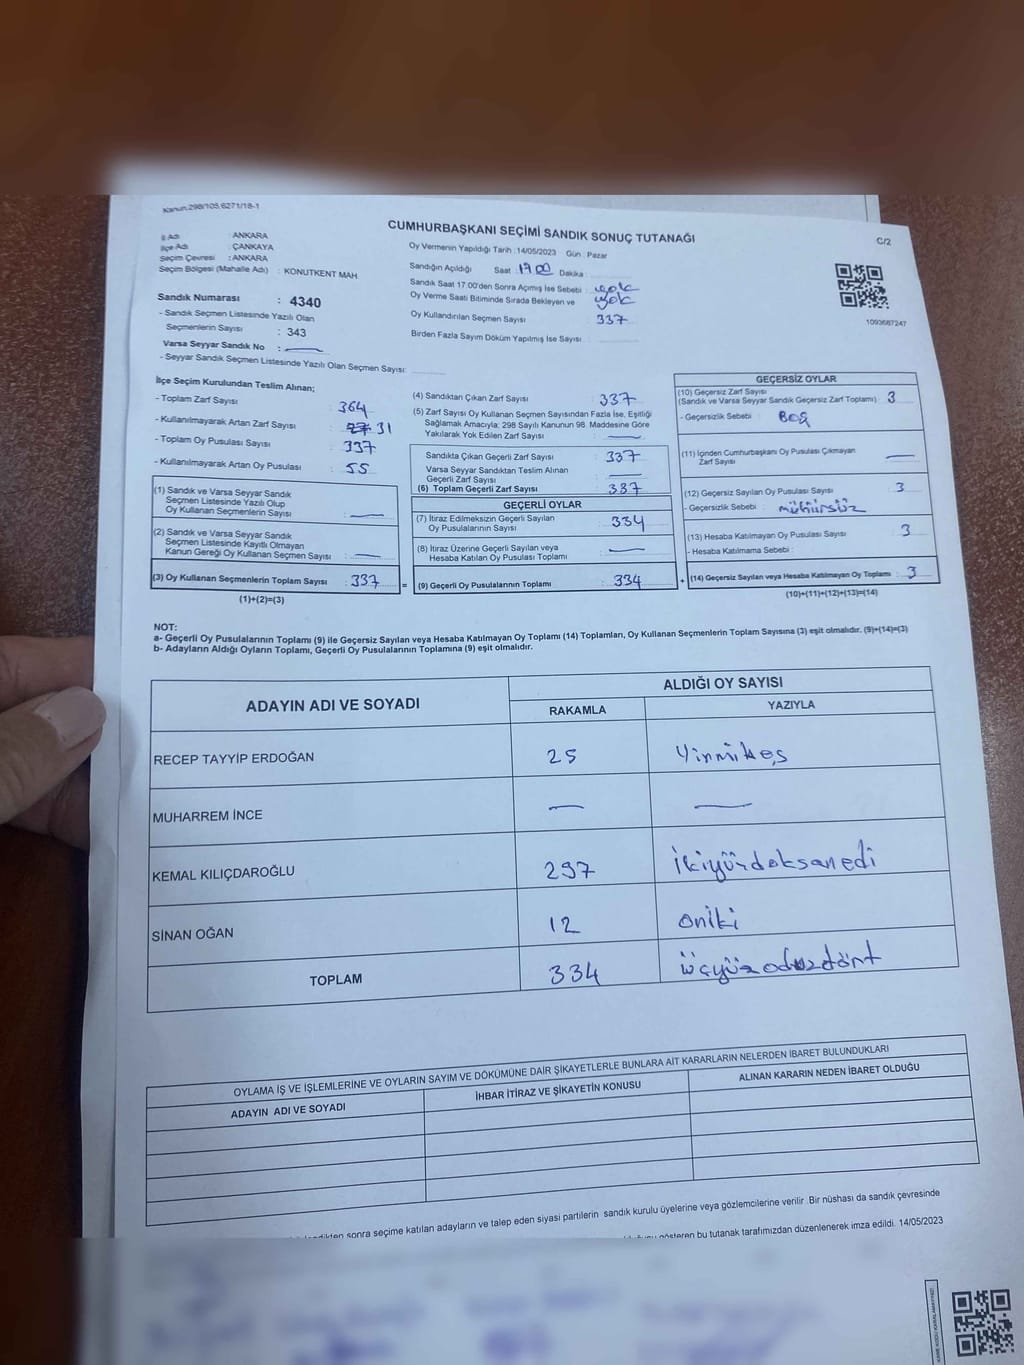 Kanun.298/105,6271/18-1
CUMHURBAŞKANI SEÇİMİ SANDIK SONUÇ TUTANAĞI
C/2
İl Adı : ANKARA
İlçe Adı : ÇANKAYA
Seçim Çevresi : ANKARA
Seçim Bölgesi (Mahalle Adı) : KONUTKENT MAH.
Sandık Numarası : 4340
- Sandık Seçmen Listesinde Yazılı Olan
Seçmenlerin Sayısı : 343
Varsa Seyyar Sandık No : —
- Seyyar Sandık Seçmen Listesinde Yazılı Olan Seçmen Sayısı:
Oy Vermenin Yapıldığı Tarih :14/05/2023 Gün : Pazar
Sandığın Açıldığı Saat : 17 00 Dakika :
Sandık Saat 17.00'den Sonra Açımış İse Sebebi : yok
Oy Verme Saati Bitiminde Sırada Bekleyen ve : yok
Oy Kullandırılan Seçmen Sayısı : 337
Birden Fazla Sayım Döküm Yapılmış İse Sayısı :
1093687247
İlçe Seçim Kurulundan Teslim Alınan;
- Toplam Zarf Sayısı : 364
- Kullanılmayarak Artan Zarf Sayısı : 31
- Toplam Oy Pusulası Sayısı : 337
- Kullanılmayarak Artan Oy Pusulası : 55
(1) Sandık ve Varsa Seyyar Sandık
Seçmen Listesinde Yazılı Olup
Oy Kullanan Seçmenlerin Sayısı : —
(2) Sandık ve Varsa Seyyar Sandık
Seçmen Listesinde Kayıtlı Olmayan
Kanun Gereği Oy Kullanan Seçmen Sayısı : —
(3) Oy Kullanan Seçmenlerin Toplam Sayısı : 337 =
(1)+(2)=(3)
(4) Sandıktan Çıkan Zarf Sayısı : 337
(5) Zarf Sayısı Oy Kullanan Seçmen Sayısından Fazla İse, Eşitliği
Sağlamak Amacıyla; 298 Sayılı Kanunun 98. Maddesine Göre
Yakılarak Yok Edilen Zarf Sayısı : —
Sandıkta Çıkan Geçerli Zarf Sayısı : 337
Varsa Seyyar Sandıktan Teslim Alınan
Geçerli Zarf Sayısı : —
(6) Toplam Geçerli Zarf Sayısı : 337
GEÇERLİ OYLAR
(7) İtiraz Edilmeksizin Geçerli Sayılan
Oy Pusulalarının Sayısı : 334
(8) İtiraz Üzerine Geçerli Sayılan veya
Hesaba Katılan Oy Pusulası Toplamı : —
(9) Geçerli Oy Pusulalarının Toplamı : 334 +
GEÇERSİZ OYLAR
(10) Geçersiz Zarf Sayısı
(Sandık ve Varsa Seyyar Sandık Geçersiz Zarf Toplamı) : 3
- Geçersizlik Sebebi : Boş
(11) İçinden Cumhurbaşkanı Oy Pusulası Çıkmayan
Zarf Sayısı : —
(12) Geçersiz Sayılan Oy Pusulası Sayısı : 3
- Geçersizlik Sebebi : mühürsüz
(13) Hesaba Katılmayan Oy Pusulası Sayısı : 3
- Hesaba Katılmama Sebebi :
(14) Geçersiz Sayılan veya Hesaba Katılmayan Oy Toplamı : 3
(10)+(11)+(12)+(13)=(14)
NOT:
a- Geçerli Oy Pusulalarının Toplamı (9) ile Geçersiz Sayılan veya Hesaba Katılmayan Oy Toplamı (14) Toplamları, Oy Kullanan Seçmenlerin Toplam Sayısına (3) eşit olmalıdır. (9)+(14)=(3)
b- Adayların Aldığı Oyların Toplamı, Geçerli Oy Pusulalarının Toplamına (9) eşit olmalıdır.
ADAYIN ADI VE SOYADI ALDIĞI OY SAYISI
RAKAMLA YAZIYLA
RECEP TAYYİP ERDOĞAN 25 Yirmibeş
MUHARREM İNCE — —
KEMAL KILIÇDAROĞLU 297 ikiyüzdoksanedi
SİNAN OĞAN 12 oniki
TOPLAM 334 üçyüzotuzdört
OYLAMA İŞ VE İŞLEMLERİNE VE OYLARIN SAYIM VE DÖKÜMÜNE DAİR ŞİKAYETLERLE BUNLARA AİT KARARLARIN NELERDEN İBARET BULUNDUKLARI
ADAYIN ADI VE SOYADI İHBAR İTİRAZ VE ŞİKAYETİN KONUSU ALINAN KARARIN NEDEN İBARET OLDUĞU
sonra seçime katılan adayların ve talep eden siyasi partilerin sandık kurulu üyelerine veya gözlemcilerine verilir. Bir nüshası da sandık çevresinde
gösteren bu tutanak tarafımızdan düzenlenerek imza edildi. 14/05/2023